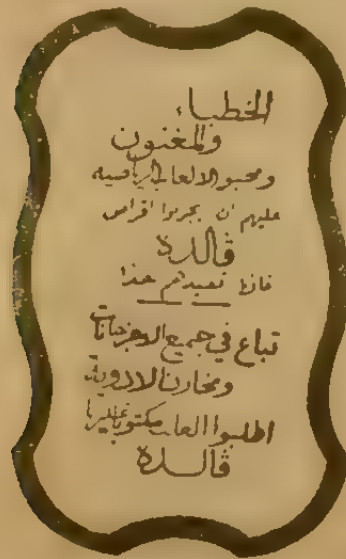 الخطباء
والمغنون
ومحبو الالعاب الرياضيه
عليهم ان يجربوا اقراص
ڤالدة
فانها تفيدهم هذا
تباع في جميع الاجزخانات
ومخازن الادوية
اطلبوا العلب مكتوب عليها
ڤالدة